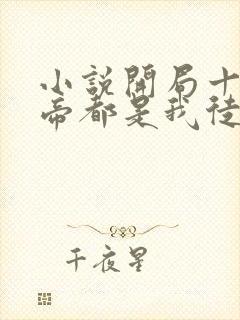 小說開局十
帝都是我徒
千夜星